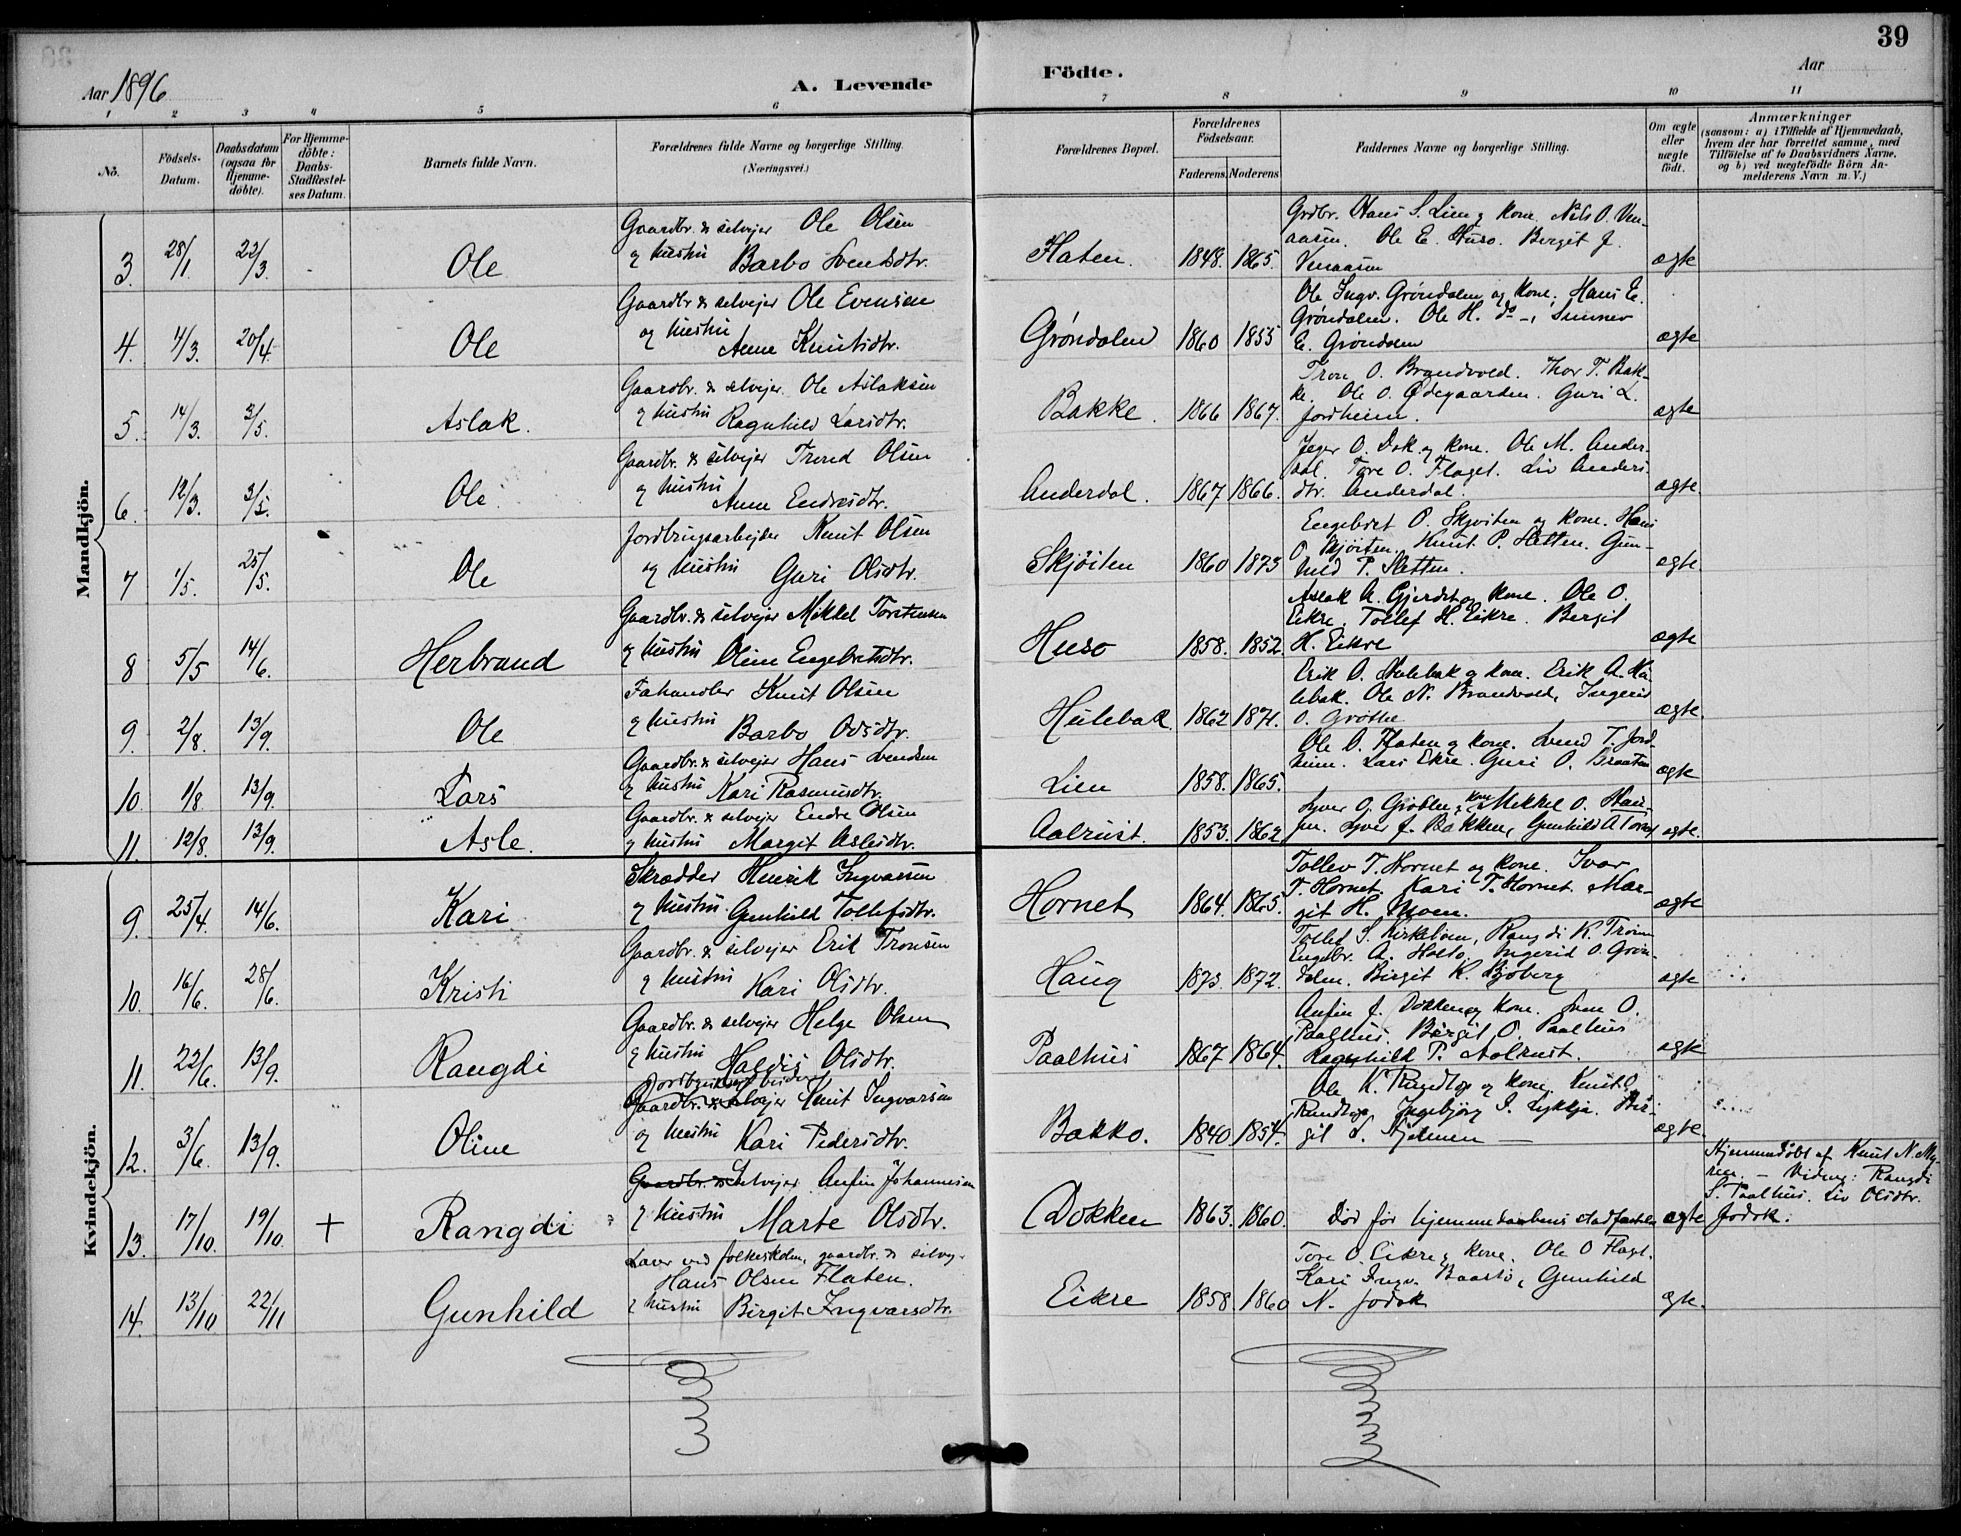 39
Aar 1896
A. Levende
Födte.
Aar
1 2 3 4 5 6 7 8 9 10 11
No.
Födsels-Datum.
Daabsdatum (ogsaa for Hjemme-döbte).
For Hjemme-döbte: Daabs-Stadfæstel-ses Datum.
Barnets fulde Navn.
Forældrenes fulde Navne og borgerlige Stilling. (Næringsvei.)
Forældrenes Bopæl.
Forældrenes Födselsaar.
Faderens Moderens
Faddernes Navne og borgerlige Stilling.
Om ægte eller uægte födt.
Anmærkninger
(saasom: a) i Tilfælde af Hjemmedaab, hvem der har forrettet samme, med Tilföielse af to Daabsvidners Navne, og b) ved uægtefödte Börn An-melderens Navn m. V.)
Mandkjön.
3. 28/1 22/3. Ole
Gaardbr. & selvejer Ole Olsen
og hustru Barbo Svendsdtr.
Flaten. 1848. 1865.
Grdbr. Hans S. Lien og kone. Nils O. Ven-
aasen. Ole E. Huso. Bergit J.
Venaasen
ægte
4. 4/3. 20/4 Ole
Gaardbr & selvejer Ole Evensen
og hustru Anne Knutsdtr.
Gröndalen 1860 1855
Ole Ingv. Gröndalen og kone. Hans E.
Gröndalen. Ole H. do -, Sennev
E. Gröndalen
ægte
5. 14/3. 3/5. Aslak.
Gaardbr. & selvejer Ole Aslaksen
og hustru Ragnhild Larsdtr.
Bakke 1866 1867.
Tron O. Brandvold. Thor T. Bak-
ke. Ole O. Ödegaarden. Guri L.
Jordheim.
ægte
6. 12/3. 3/5. Ole
Gaardbr. & selvejer Trond Olsen
og hustru Anne Endresdtr.
Anderdal. 1867 1866.
O. Dok og kone. Ole M. Ander-
dal. Tore O. Flaget. Liv Anders-
dtr. Anderdal.
ægte.
7 1/5. 25/5. Ole
Jordbrugsarbejder Knut Olsen
og hustru Guri Olsdtr.
Skjöiten 1860 1873
Engebret O. Skjöiten og kone. Hans
O. Skjöiten. Knut P. Sletten. Gun-
hild P. Sletten.
ægte.
8 5/5 14/6. Herbrand
Gaardbr. & selvejer Mikkel Torstensen
og hustru Oline Engebretsdtr.
Huso 1858. 1852.
Aslak A. Gjerdet og kone. Ole O.
Eikre. Tollef H. Eikre. Bergit
H. Eikre
ægte
9. 2/8. 13/9. Ole
Fæhandler Knut Olsen
og hustru Barbo
Hulebak 1862 1871.
Erik O. Hulebak og kone. Erik A. Hu-
lebak. Ole N. Brandvold, Ingerid
O. Gröthe
ægte.
10. 1/8. 13/9. Lars
Gaardbr. & selvejer Hans Svendsen
og hustru Kari Rasmusdtr.
Lien 1858. 1865.
Ole O. Flaten og kone. Svend T. Jord-
heim. Lars Ekre. Guri O. Braaten
ægte
11. 12/8. 13/9. Asle.
Gaardbr. & selvejer Endre Olsen
og hustru Margit Aslesdtr.
Aalrust. 1853. 1862
O. Gröthe & kone Mikkel O.
J. Bakken, Gunhild A
ægte.
Kvindekjön.
9. 25/4. 14/6. Kari
Skrædder Henrik Ingvarsen
og hustru Gunhild Tollefsdtr.
Hornet 1864. 1865.
Tollev T. Hornet og kone. Ivar
T. Hornet. Kari T. Hornet. Mar-
git H. Moen.
ægte
10. 16/6. 28/6. Kristi
Gaardbr. & selvejer Erik Tronsen
og hustru Kari Olsdtr.
Haug 1873. 1872.
Tollef S. Kirkeboen, Rangdi K.
Engebr. A. Holto, Ingerid O. Grön-
dalen. Birgit K. Bjöberg
ægte
11. 22/6. 13/9. Rangdi
Gaardbr. & selvejer Helge Olsen
og hustru Haldis Olsdtr.
Paalhus 1867 1864.
Anfin J. Dokken og kone. Sven O.
Paalhus. Birgit O. Paalhus
Ragnhild P. Aalrust.
ægte
12. 3/6. 13/9. Oline
Jordbrugsarbeider
Gaardbr. & selvejer Knut Ingvarsen
og hustru Kari Pedersdtr.
Bakko. 1840. 1854.
Ole K. Rundtop og kone. Knut O.
Rundtop, Ingebjörg I. Lykkja. Bir-
git S. Hjelmen
ægte.
13. 17/10. 19/10. + Rangdi
Gaardbr. & Selvejer Anfin Johannesen
og hustru Marte Olsdtr.
Dokken 1863. 1860.
Död för hjemmedaabens stadfæstelse
ægte
Hjemmedöbt af Knut N. My-
ren. - Vidner: Rangdi
S. Paalhus. Liv Olsdtr.
Jodok.
14. 13/10. 22/11 Gunhild
Lærer ved folkeskolen, gaardbr. & selvej.
Hans Olsen Flaten.
og hustru Birgit Ingvarsdtr.
Eikre 1858 1860
Tore O. Eikre & kone. Ole O Flaget.
Kari Ingv. Baasto, Gunhild
N. Jodok
ægte.